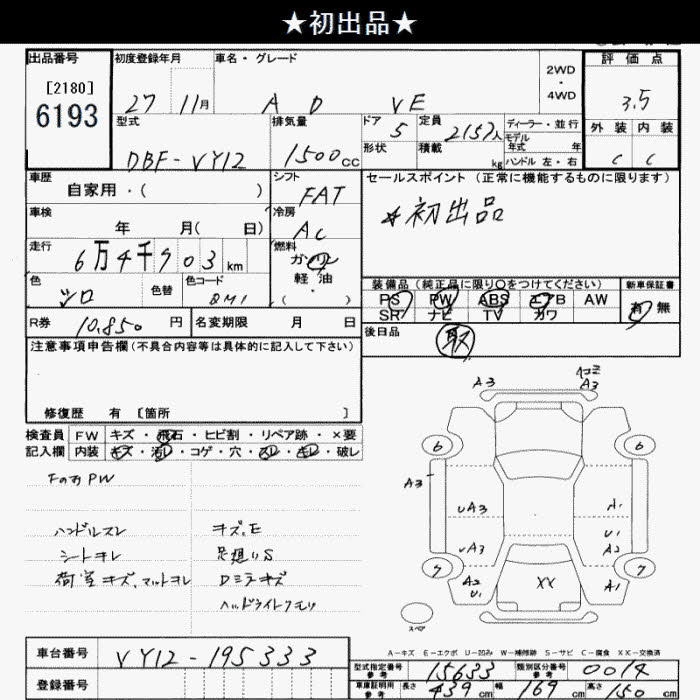 ★初出品★
出品番号
[2180]
6193
初度登録年月
27 11月
車名・グレード
AD VE
2WD
・
4WD
評価点
3.5
外装 内装
C C
型式
DBF-VY12
排気量
1500cc
ドア 5
形状
定員 2/5人
積載 kg
ディーラー・並行
モデル年式 年
ハンドル 左・右
車歴
自家用・( )
シフト
FAT
車検
年 月( 日)
冷房
AC
走行
6万4千703km
燃料
ガソリン
軽油
( ・ )
色
シロ
色替
色コード
QM1
R券 10,850円
名変期限 月 日
セールスポイント(正常に機能するものに限ります)
☆初出品
装備品(純正品に限り○をつけてください)
PS PW ABS エアB AW
SR ナビ TV カワ
新車保証書
有 無
後日品
取
注意事項申告欄(不具合内容等は具体的に記入して下さい)
修復歴 有 [箇所 ]
検査員 FW キズ・飛石・ヒビ割・リペア跡・×要
記入欄 内装 キズ・汚レ・コゲ・穴・スレ・キレ・破レ
FのみPW
ハンドルスレ
シートヨレ
荷室キズ、マットヨレ
キズ、E
足廻りS
Dミラキズ
ヘッドライトクモリ
A3
A3
6
6
A3
UA3
A1
UA3
U1
A2
7
7
A2
U1
XX
A1
スペア
A-キズ E-エクボ U-凹み W-補修跡 S-サビ C-腐食 XX-交換済
車台番号 VY12-195333
登録番号
型式指定番号 参考 15633
類別区分番号 参考 0014
車庫証明用 参考 長さ 439cm 幅 169cm 高さ 150cm